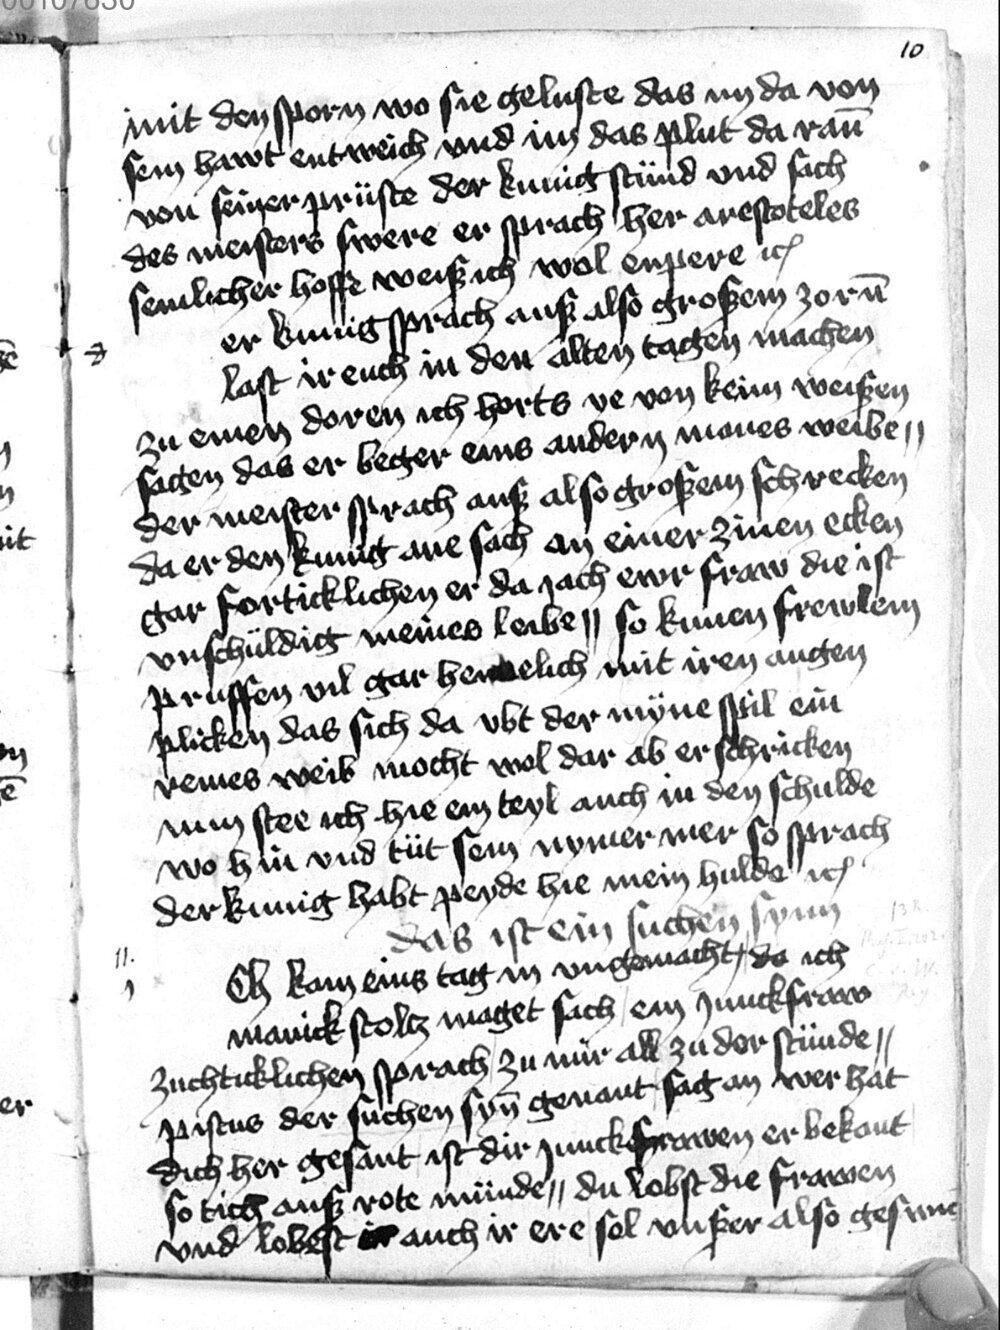 00107630
10
mit den sporn wo sie geluste das im da von
sein hawt entweich vnd im das plut da ran̄
von seiner prüste der kunig stünd vnd sach
des meisters swere er sprach her arestoteles
semlicher hoffe weiß ich wol enpere ich
er kunig sprach auß also großem zorn̄
d
last ir euch in den alten tagen machen
zu einen doren ich horts ye von keim weißen
sagen das er beger eins andern manes weibe //
der meister sprach auß also großem schrecken
da er den kunig ane sach an einer zinen ecken
gar forticklichen er da jach ewr fraw die ist
vnschüldig meines leibe // so kunen frewlein
pruffen vil gar heimelich mit iren augen
plicken das sich da vbt der myne spil ein
reines weib mocht wol dar ab erschricken
nun stee ich hie ein teyl auch in den schulde
wo hin vnd tüt sein nymer mer so sprach
der kunig habt peyde hie mein hulde ich
das ist ein suchen synn
11.
Ch kam eins tag in vngemacht / do ich
manick stoltz maget sach / ein junckfraw
zuchticklichen sprach zu mir all zu der stünde //
pistus der suchen syn̄ genant sag an wer hat
dich her gesant ist dir junckfrawen er bekant
so tich auß rote münde // du lobst die frawen
vnd lobest auch ir ere / sol vnßer also gesunc